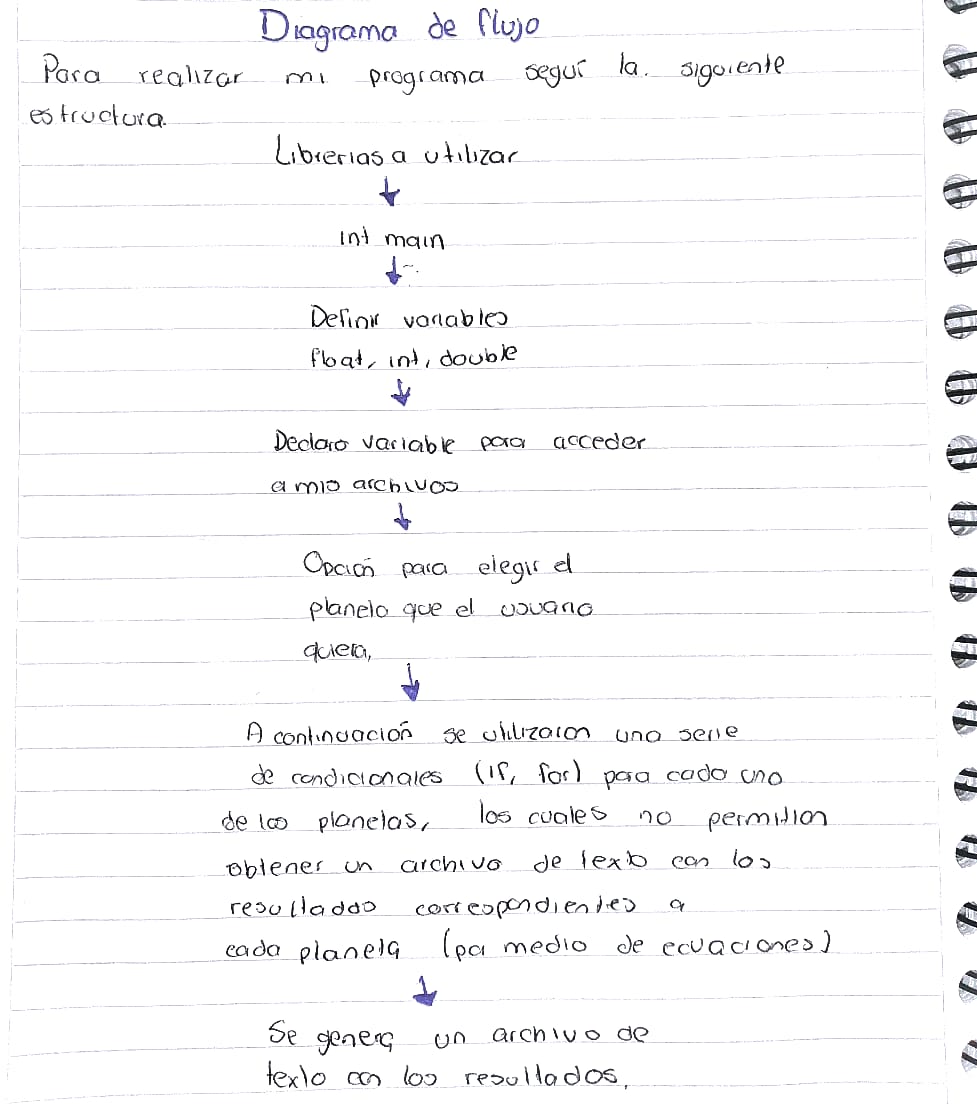 Diagrama de flujo
Para realizar mi programa seguí la siguiente
estructura.
Librerias a utilizar
↓
int main
↓
Definir variables
float, int, double
↓
Declaro variable para acceder
a mis archivos
↓
Opción para elegir el
planeta que el usuario
quiera,
↓
A continuación se utilizaron una serie
de condicionales (if, for) para cada uno
de los planetas, los cuales no permitian
obtener un archivo de texto con los
resultados correspondientes a
cada planeta (por medio de ecuaciones)
↓
Se genera un archivo de
texto con los resultados,